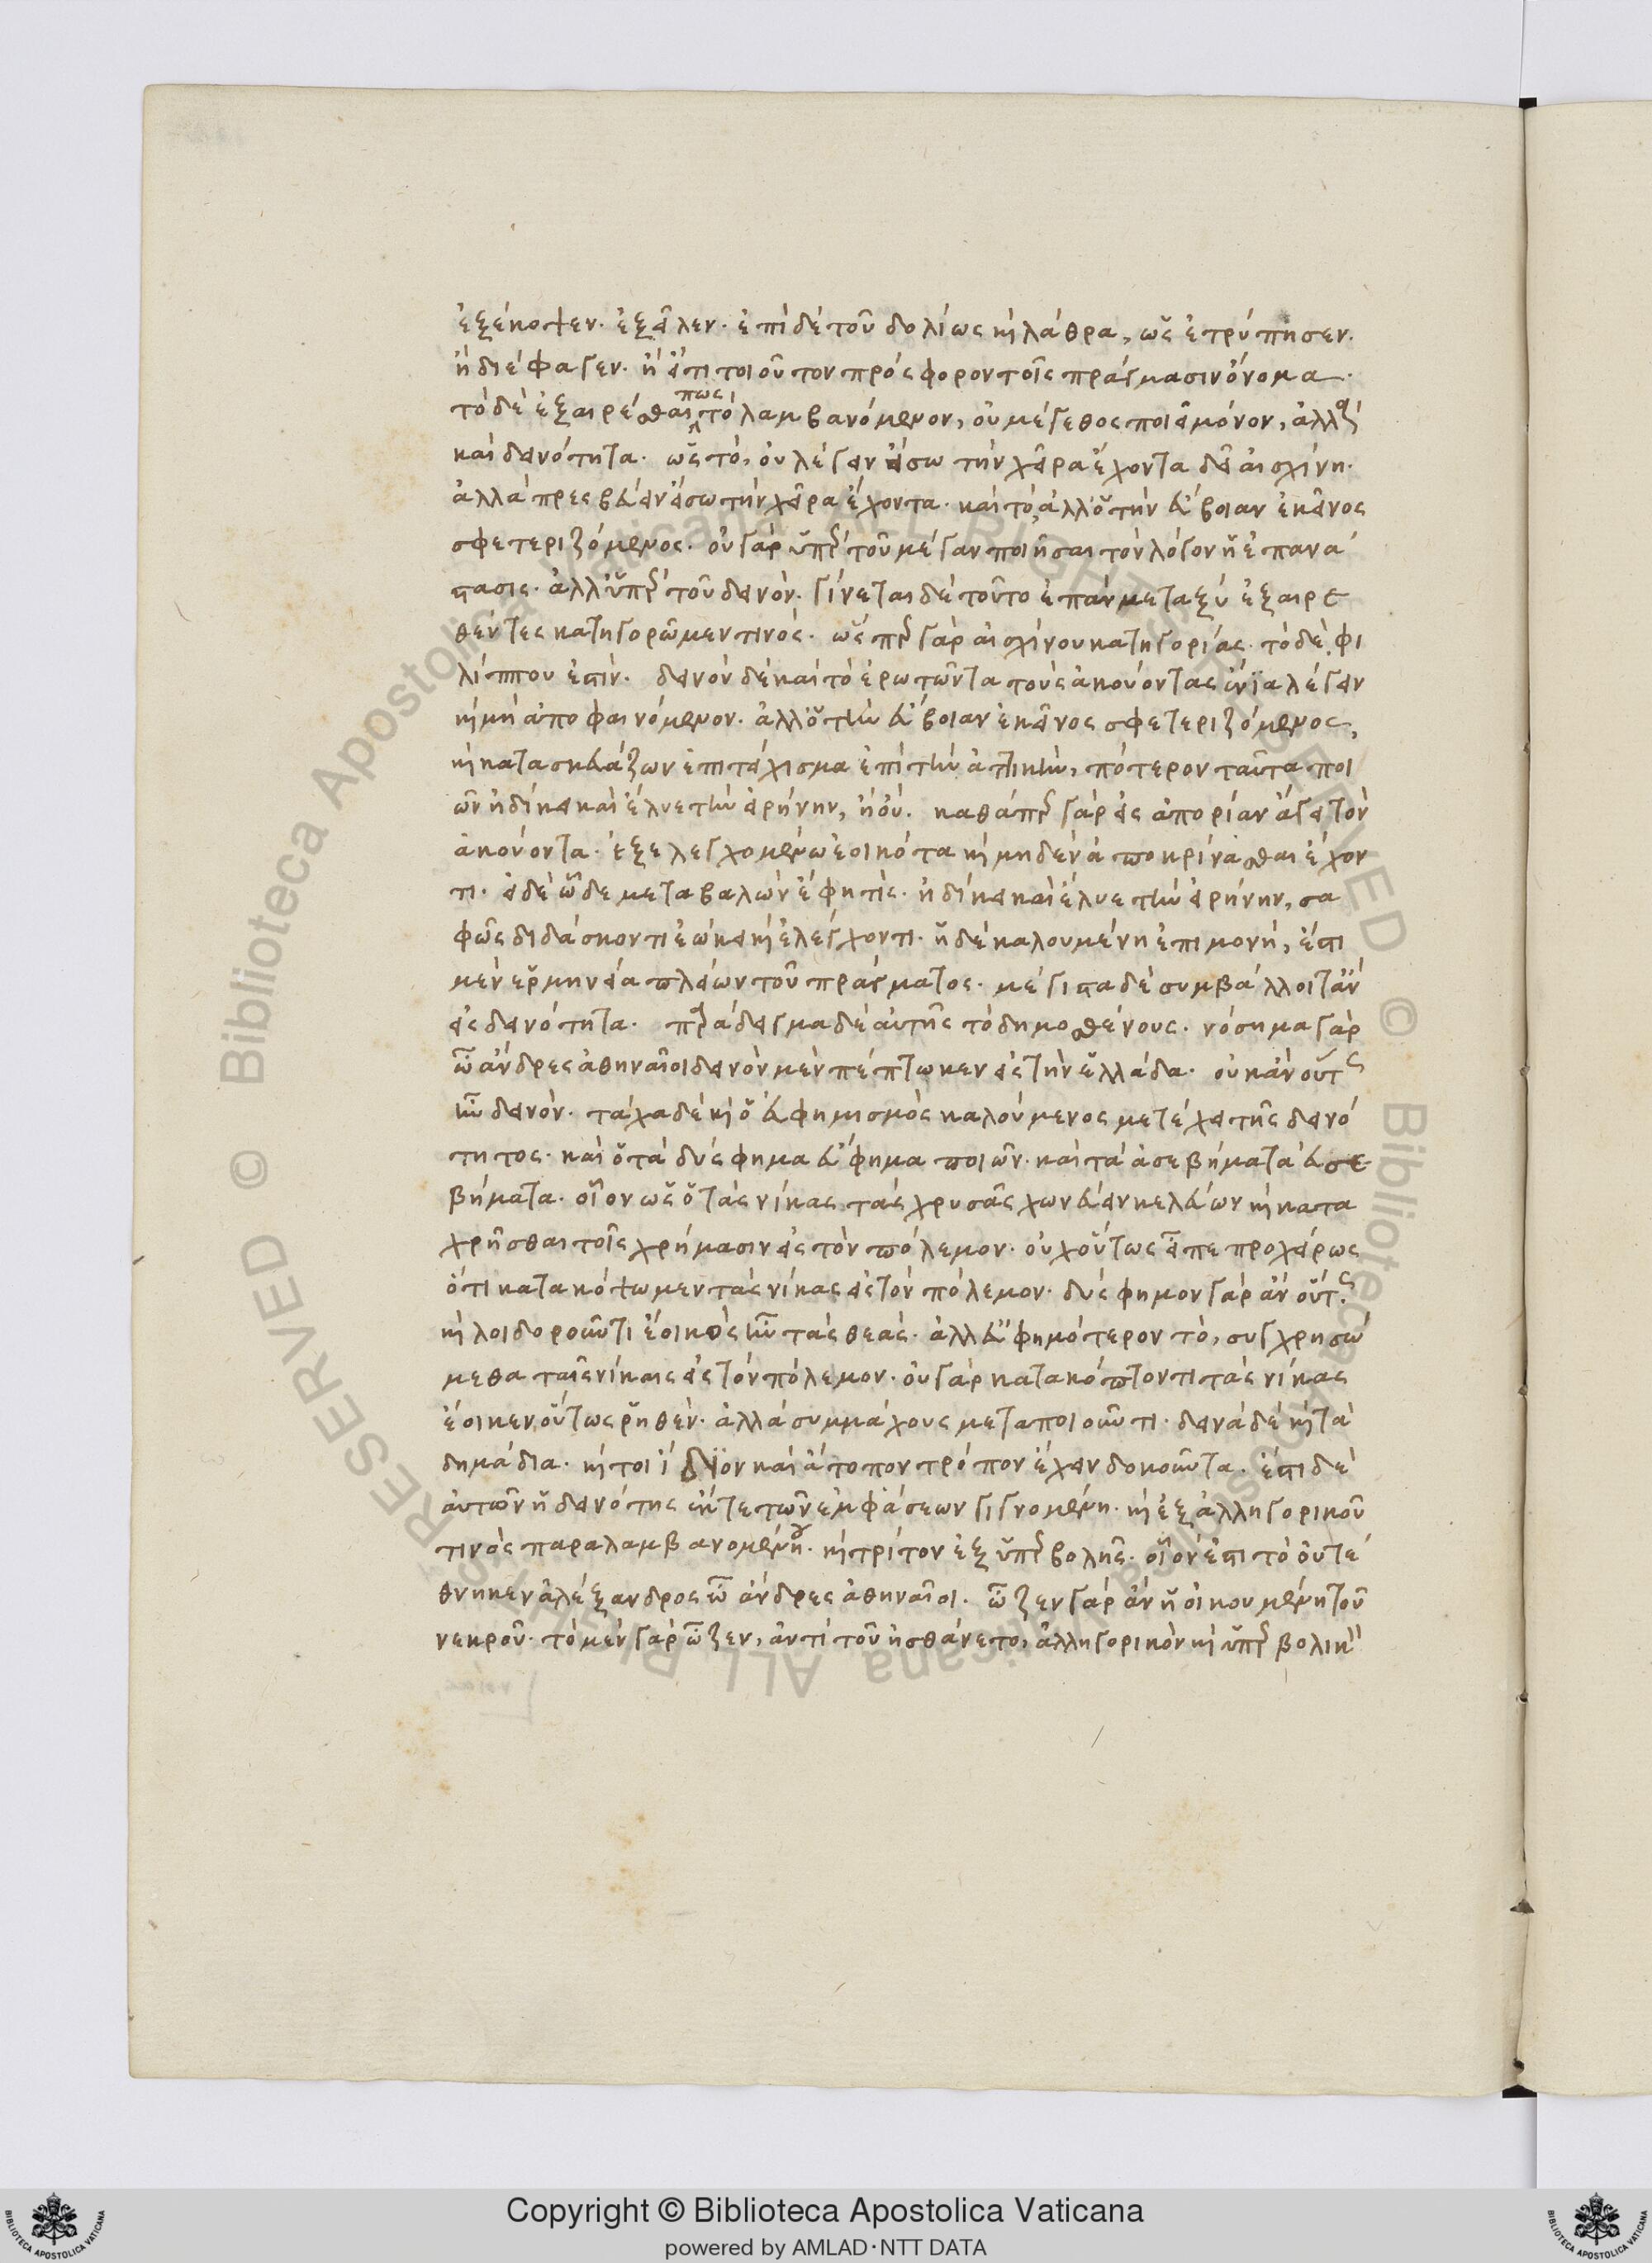 ἐξέκοψεν. ἐξεῖλεν. ἐπὶ δὲ τοῦ δολίως κὶ λάθρα, ὡς ἐτρύπησεν.
ἢ διέφαγεν. ἢ εἴ τι τοιοῦτον πρόσφορον τοῖς πράγμασιν ὄνομα.
τὸ δὲ ἐξαιρέσθαι πως τὸ λαμβανόμενον, οὐ μέγεθος ποιεῖ μόνον, ἀλλὰ
καὶ δεινότητα. ὡς τὸ, οὐ λέγειν εἴσω τὴν χεῖρα ἔχοντα δεῖ αἰσχίνη.
ἀλλὰ πρεσβεύειν εἴσω τὴν χεῖρα ἔχοντα. καὶ τὸ, ἀλλ' ὁ τὴν εὔβοιαν ἐκεῖνος
σφετεριζόμενος. οὐ γὰρ ὑπὲρ τοῦ μέγαν ποιῆσαι τὸν λόγον ἡ ἐπανά
στασις. ἀλλ' ὑπὲρ τοῦ δεινόν. γίνεται δὲ τοῦτο ἐπὰν μεταξὺ ἐξαιρε
θέντες κατηγορῶμεν τινός. ὥσπερ γὰρ αἰσχίνου κατηγορίας. τὸ δὲ φι
λίππου ἐστίν. δεινὸν δὲ καὶ τὸ ἐρωτῶντα τοὺς ἀκούοντας ἔνια λέγειν
κὶ μὴ ἀποφαινόμενον. ἀλλ' ὁ τὴν εὔβοιαν ἐκεῖνος σφετεριζόμενος,
κὶ κατασκευάζων ἐπιτείχισμα ἐπὶ τὴν ἀττικὴν, πότερον ταῦτα ποι
ῶν ἠδίκει καὶ ἔλυε τὴν εἰρήνην, ἢ οὔ. καθάπερ γὰρ εἰς ἀπορίαν ἄγει τὸν
ἀκούοντα. ἐξελεγχομένω ἐοικότα κὶ μηδὲν ἀποκρίνασθαι ἔχον
τι. εἰ δὲ ὧδε μεταβαλὼν ἔφη τίς. ἠδίκει καὶ ἔλυε τὴν εἰρήνην, σα
φῶς διδάσκοντι ἐώκει κὶ ἐλέγχοντι. ἡ δὲ καλουμένη ἐπιμονή, ἐστι
μὲν ἑρμηνεία πλείων τοῦ πράγματος. μέγιστα δὲ συμβάλλοιτ' ἂν
εἰς δεινότητα. παράδειγμα δὲ αὐτῆς τὸ δημοσθένους. νόσημα γὰρ
ὦ ἄνδρες ἀθηναῖοι δεινὸν μὲν πέπτωκεν εἰς τὴν ἑλλάδα. οὐκ ἂν οὕτως
ἦν δεινόν. τάχα δὲ κὶ ὁ εὐφημισμὸς καλούμενος μετέχει τῆς δεινό
τητος. καὶ ὁ τὰ δύσφημα εὔφημα ποιῶν. καὶ τὰ ἀσεβήματα εὐσε
βήματα. οἷον ὡς ὁ τὰς νίκας τὰς χρυσᾶς χωνεύειν κελεύων κὶ κατα
χρῆσθαι τοῖς χρήμασιν εἰς τὸν πόλεμον. οὐχ οὕτως εἶπε προχείρως
ὅτι κατακόψωμεν τὰς νίκας εἰς τὸν πόλεμον. δύσφημον γὰρ ἂν οὕτως
κὶ λοιδοροῦντι ἐοικὸς ἦν τὰς θεάς. ἀλλ' εὐφημότερον τὸ, συγχρησώ
μεθα ταῖς νίκαις εἰς τὸν πόλεμον. οὐ γὰρ κατακόπτοντι τὰς νίκας
ἔοικεν οὕτως ῥηθὲν. ἀλλὰ συμμάχους μεταποιοῦντι. δεινὰ δὲ κὶ τὰ
δημάδια. κὶ τοι ἴδιον καὶ ἄτοπον τρόπον ἔχειν δοκοῦντα. ἔστι δὲ
αὐτῶν ἡ δεινότης ἔκ τε τῶν ἐμφάσεων γιγνομένη. κὶ ἐξ ἀλληγορικοῦ
τινὸς παραλαμβανομένη. κὶ τρίτον ἐξ ὑπερβολῆς. οἷον ἐστι τὸ οὐ τέ
θνηκεν ἀλέξανδρος ὦ ἄνδρες ἀθηναῖοι. ὦζεν γὰρ ἂν ἡ οἰκουμένη τοῦ
νεκροῦ. τὸ μὲν γὰρ ὦζεν, ἀντὶ τοῦ ἠσθάνετο, ἀλληγορικὸν κὶ ὑπερβολικὸν
Copyright © Biblioteca Apostolica Vaticana
powered by AMLAD·NTT DATA